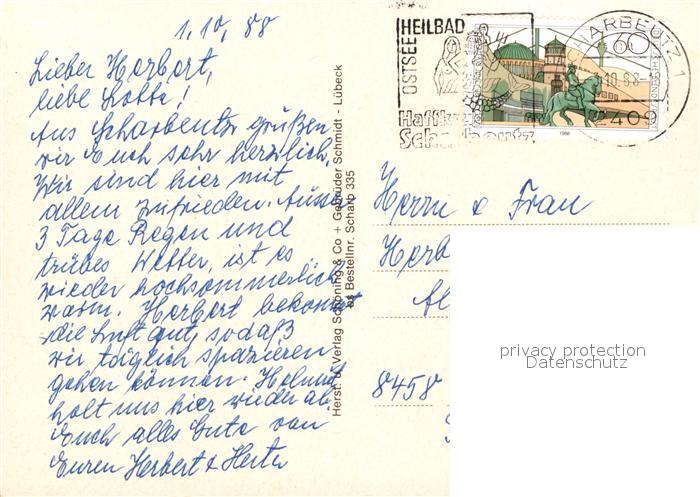 1.10.88
Lieber Herbert,
liebe Lotte!
Aus Scharbeutz grüßen
wir Euch sehr herzlich.
Wir sind hier mit
allem zufrieden. Ausser
3 Tage Regen und
trübes Wetter, ist es
wieder hochsommerlich
warm. Herbert bekommt
die Luft gut, sodaß
wir täglich spazieren
gehen können. Helmut
holt uns hier wieder ab
Euch alles Gute von
Euren Herbert & Herta
Herst. u. Verlag Schöning & Co + Gebrüder Schmidt - Lübeck
Bestellnr. Scharb 335
OSTSEE
HEILBAD
Haffkr
Scharbeut
SCHARBEUTZ 1
10.88
2409
60
1988
Herrn & Frau
Herb
8458
privacy protection
Datenschutz